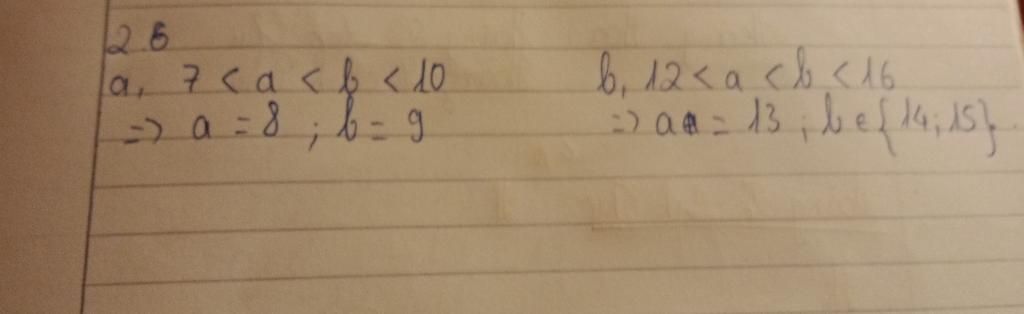 26
a, 7 < a < b < 10
=> a = 8 ; b = 9
b, 12 < a < b < 16
=> a = 13 ; b ∈ {14; 15}.